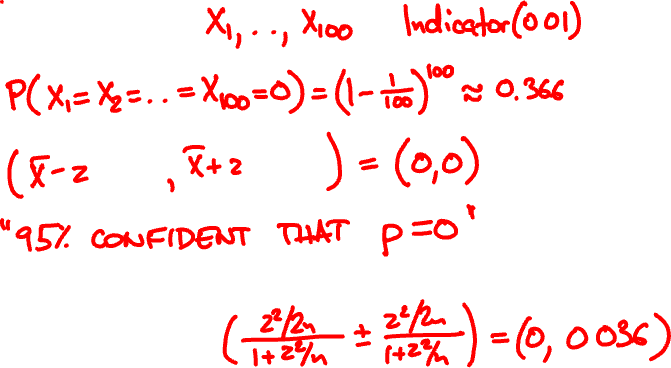 X₁, . . , X₁₀₀ Indicator(0 01)
P(X₁=X₂=. . =X₁₀₀=0)=(1-1/100)¹⁰⁰≈0.366
(x̄-z , x̄+z )=(0,0)
"95% CONFIDENT THAT p=0"
((z²/2n)/(1+z²/n) ± (z²/2n)/(1+z²/n))=(0, 0 036)